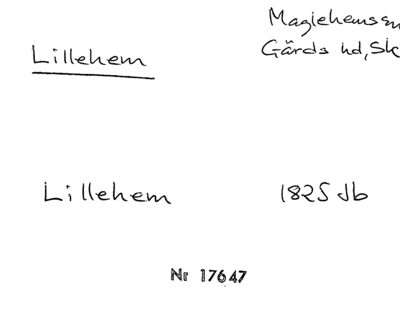 Maglehems sn
Gärds hd, Sk
Lillehem
Lillehem 1825 Jb
Nr 17647